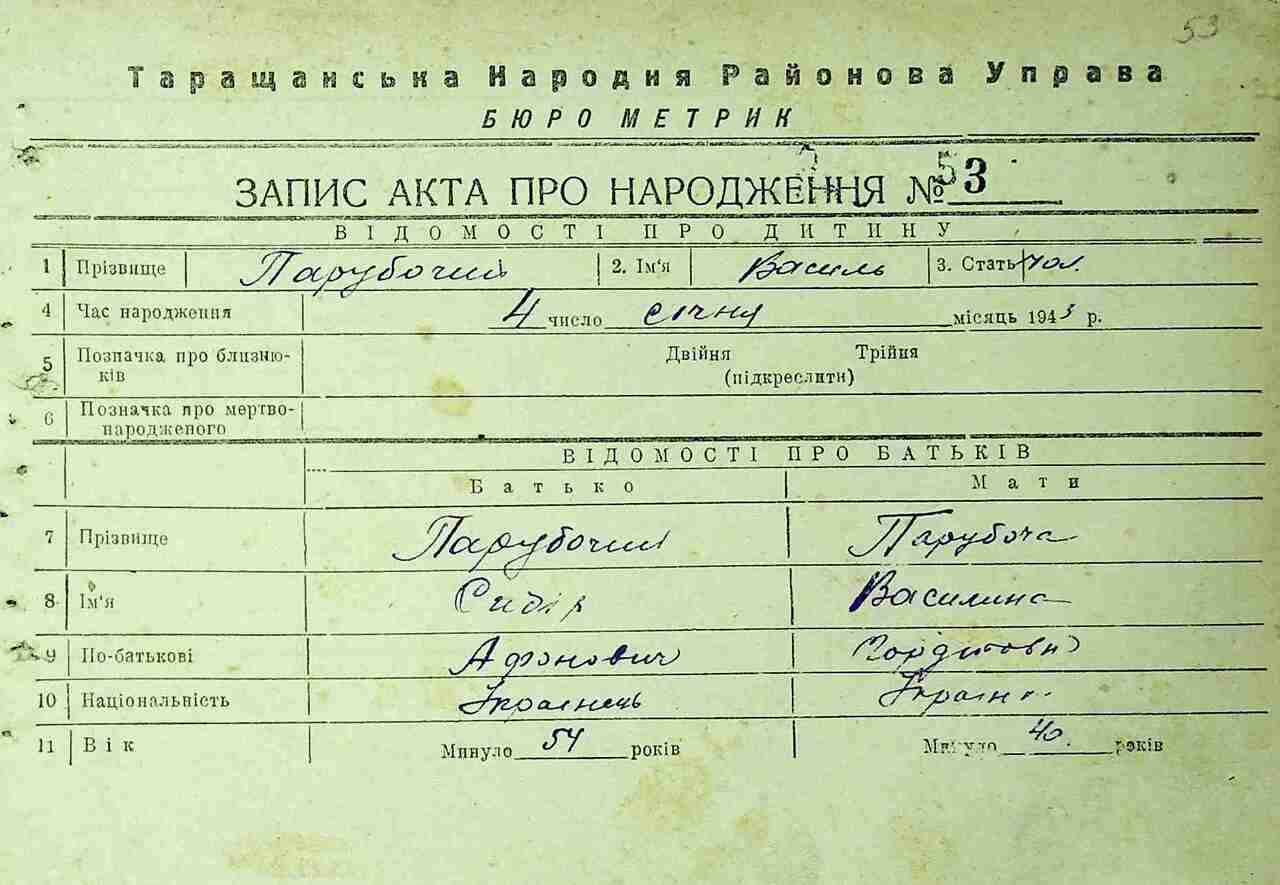 53
Таращанська Народня Районова Управа
БЮРО МЕТРИК
ЗАПИС АКТА ПРО НАРОДЖЕННЯ № 53
ВІДОМОСТІ ПРО ДИТИНУ
1 Прізвище Парубочий 2. Ім'я Василь 3. Стать чол.
4 Час народження 4 число січня місяць 1943 р.
5 Позначка про близню- Двійня Трійня
ків (підкреслити)
6 Позначка про мертво-
народженого
ВІДОМОСТІ ПРО БАТЬКІВ
Батько Мати
7 Прізвище Парубочий Парубоча
8 Ім'я Сидір Василина
9 По-батькові Афонович
10 Національність Українець Україн.
11 Вік Минуло 54 років Минуло 40. років